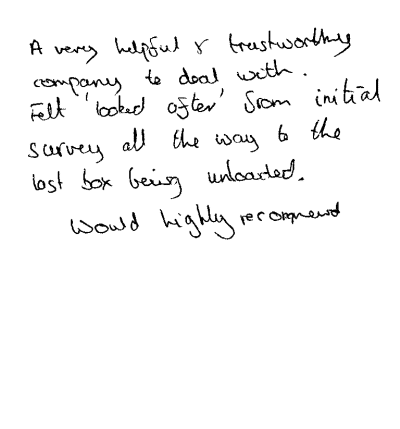 A very helpful & trustworthy
company to deal with.
Felt 'looked after' from initial
survey all the way to the
last box being unloaded.
Would highly recommend